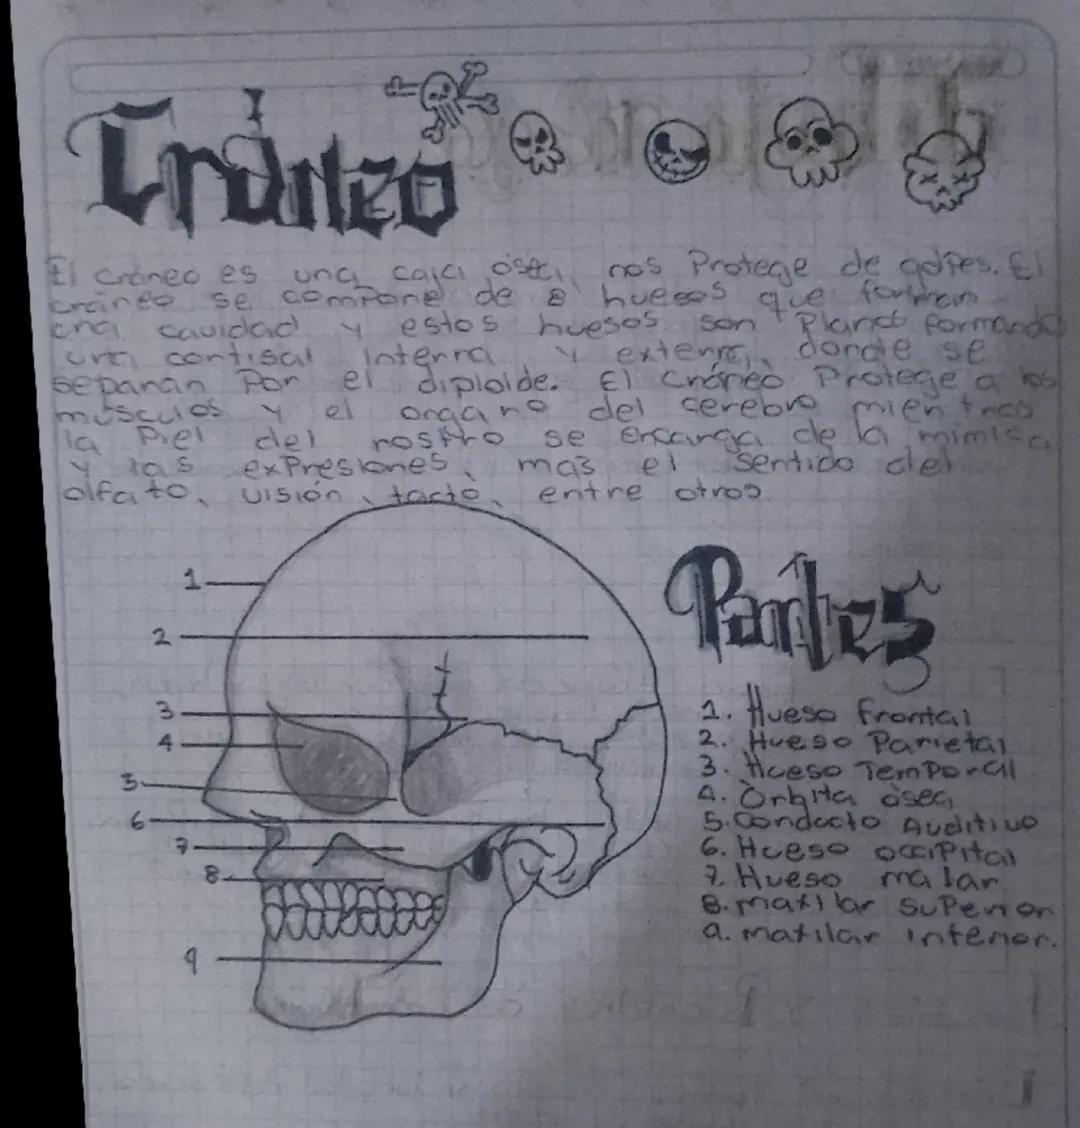 Cráneo
El cráneo es una caja ósea, nos Protege de golpes. El
cráneo se compone de 8 huesos que forman
una cavidad y estos huesos son Planos formando
una cortisal interna y externa, donde se
separan Por el diploide. El cráneo Protege a los
musculos y el organo del serebro mientras
la Piel del rostro se encarga de la mimica
y las exPresiones, mas el sentido del
olfato, visión, tacto, entre otros
Partes
1
2
3
4
5
6
7
8
9
1. Hueso frontal
2. Hueso Parietal
3. Hueso TemPoral
4. Órbita ósea
5. Conducto Auditivo
6. Hueso occiPital
7. Hueso malar
8. maxilar suPerior
9. maxilar inferior.